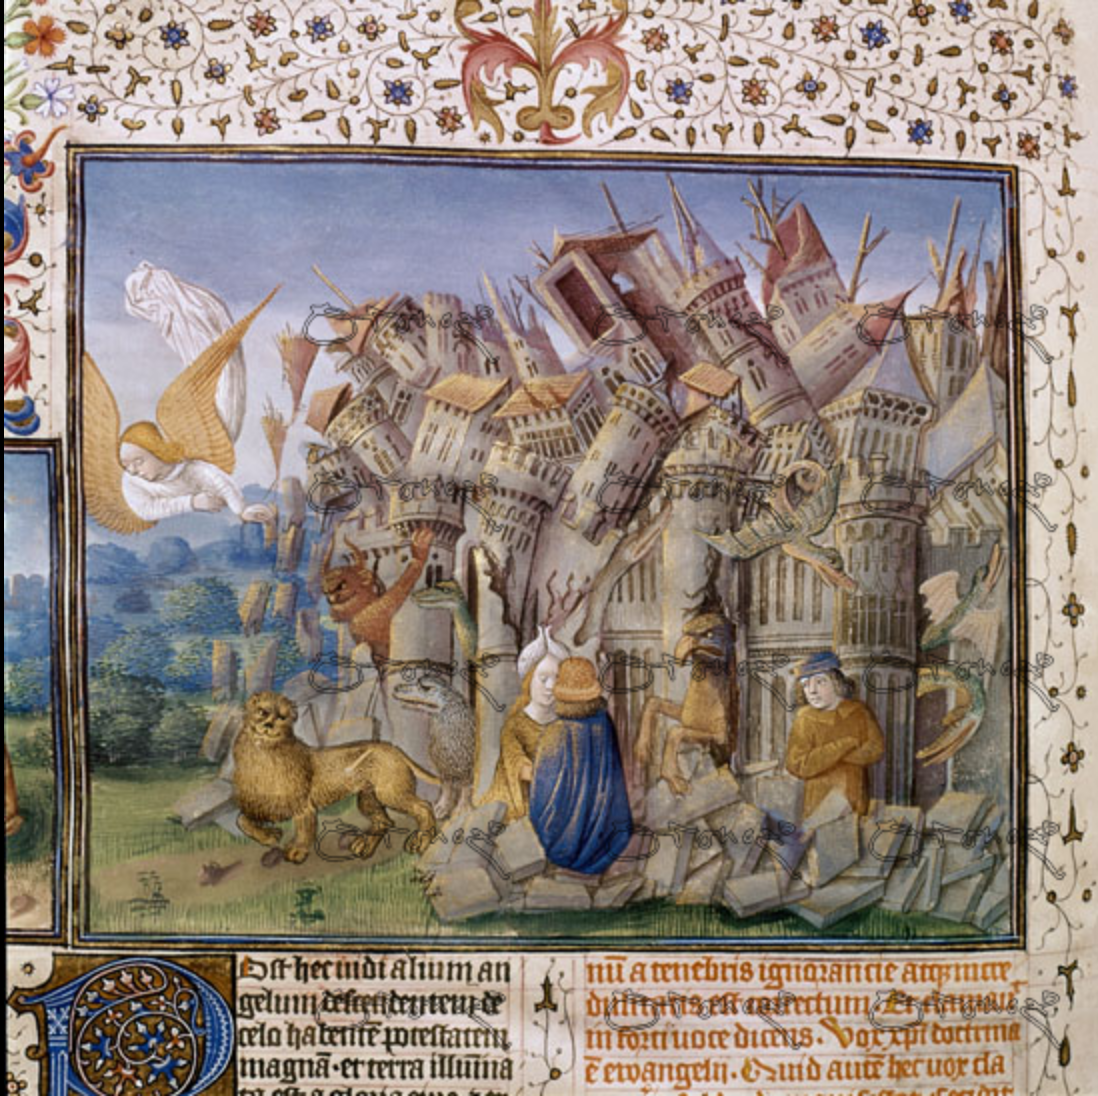 Post hec uidi alium an
gelum descendentem de
celo habentē potestatem
magnā · et terra illumina
ta est a gloria
nū a tenebris ignorancie atqꝫ incre
dulitatis est Et
in forti uoce dicens. Vox xp̄i doctrina
ē ewangelij. Quid autē hec uox cla